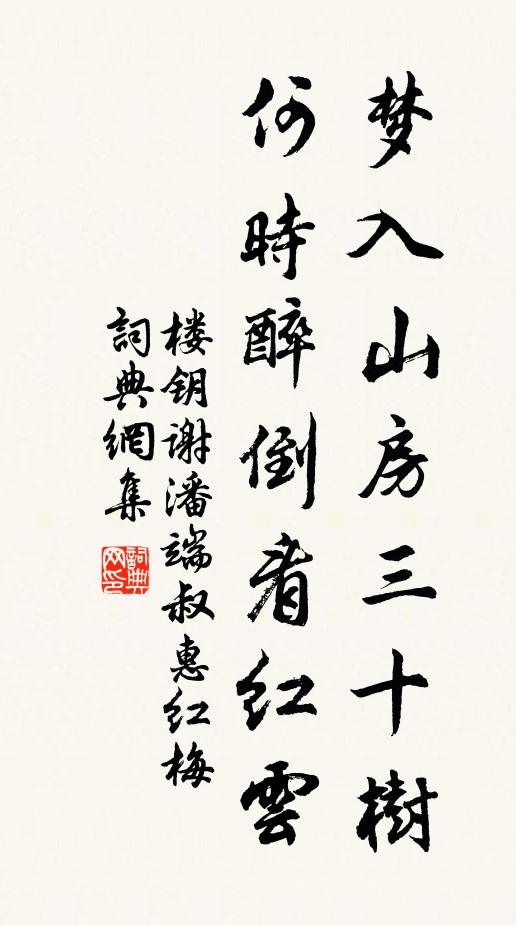 梦入山房三十樹
何時醉倒看紅雲
楼钥谢潘端叔惠红梅
詞典網集
詞典网印